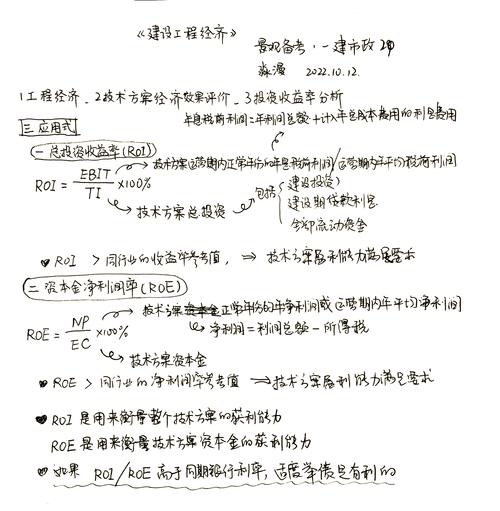 《建设工程经济》
景观备考：一建市政
2022.10.12.
1工程经济_2技术方案经济效果评价_3投资收益率分析
年息税前利润=年利润总额+计入年总成本费用的利息费用
三.应用式
(一.总投资收益率(ROI)
ROI = EBIT/TI ×100%
技术方案运营期内正常年份的年息税前利润/运营期内年平均税前利润
技术方案总投资 → 包括
建设投资
建设期贷款利息
全部流动资金
ROI > 同行业的收益率参考值, ⇒ 技术方案盈利能力满足要求
(二.资本金净利润率(ROE)
ROE = NP/EC ×100%
技术方案正常年份的年净利润或运营期内年平均净利润
净利润=利润总额-所得税
技术方案资本金
ROE > 同行业的净利润率参考值 ⇒ 技术方案盈利能力满足要求
ROI 是用来衡量整个技术方案的获利能力
ROE 是用来衡量技术方案资本金的获利能力
如果 ROI/ROE 高于同期银行利率, 适度举债是有利的